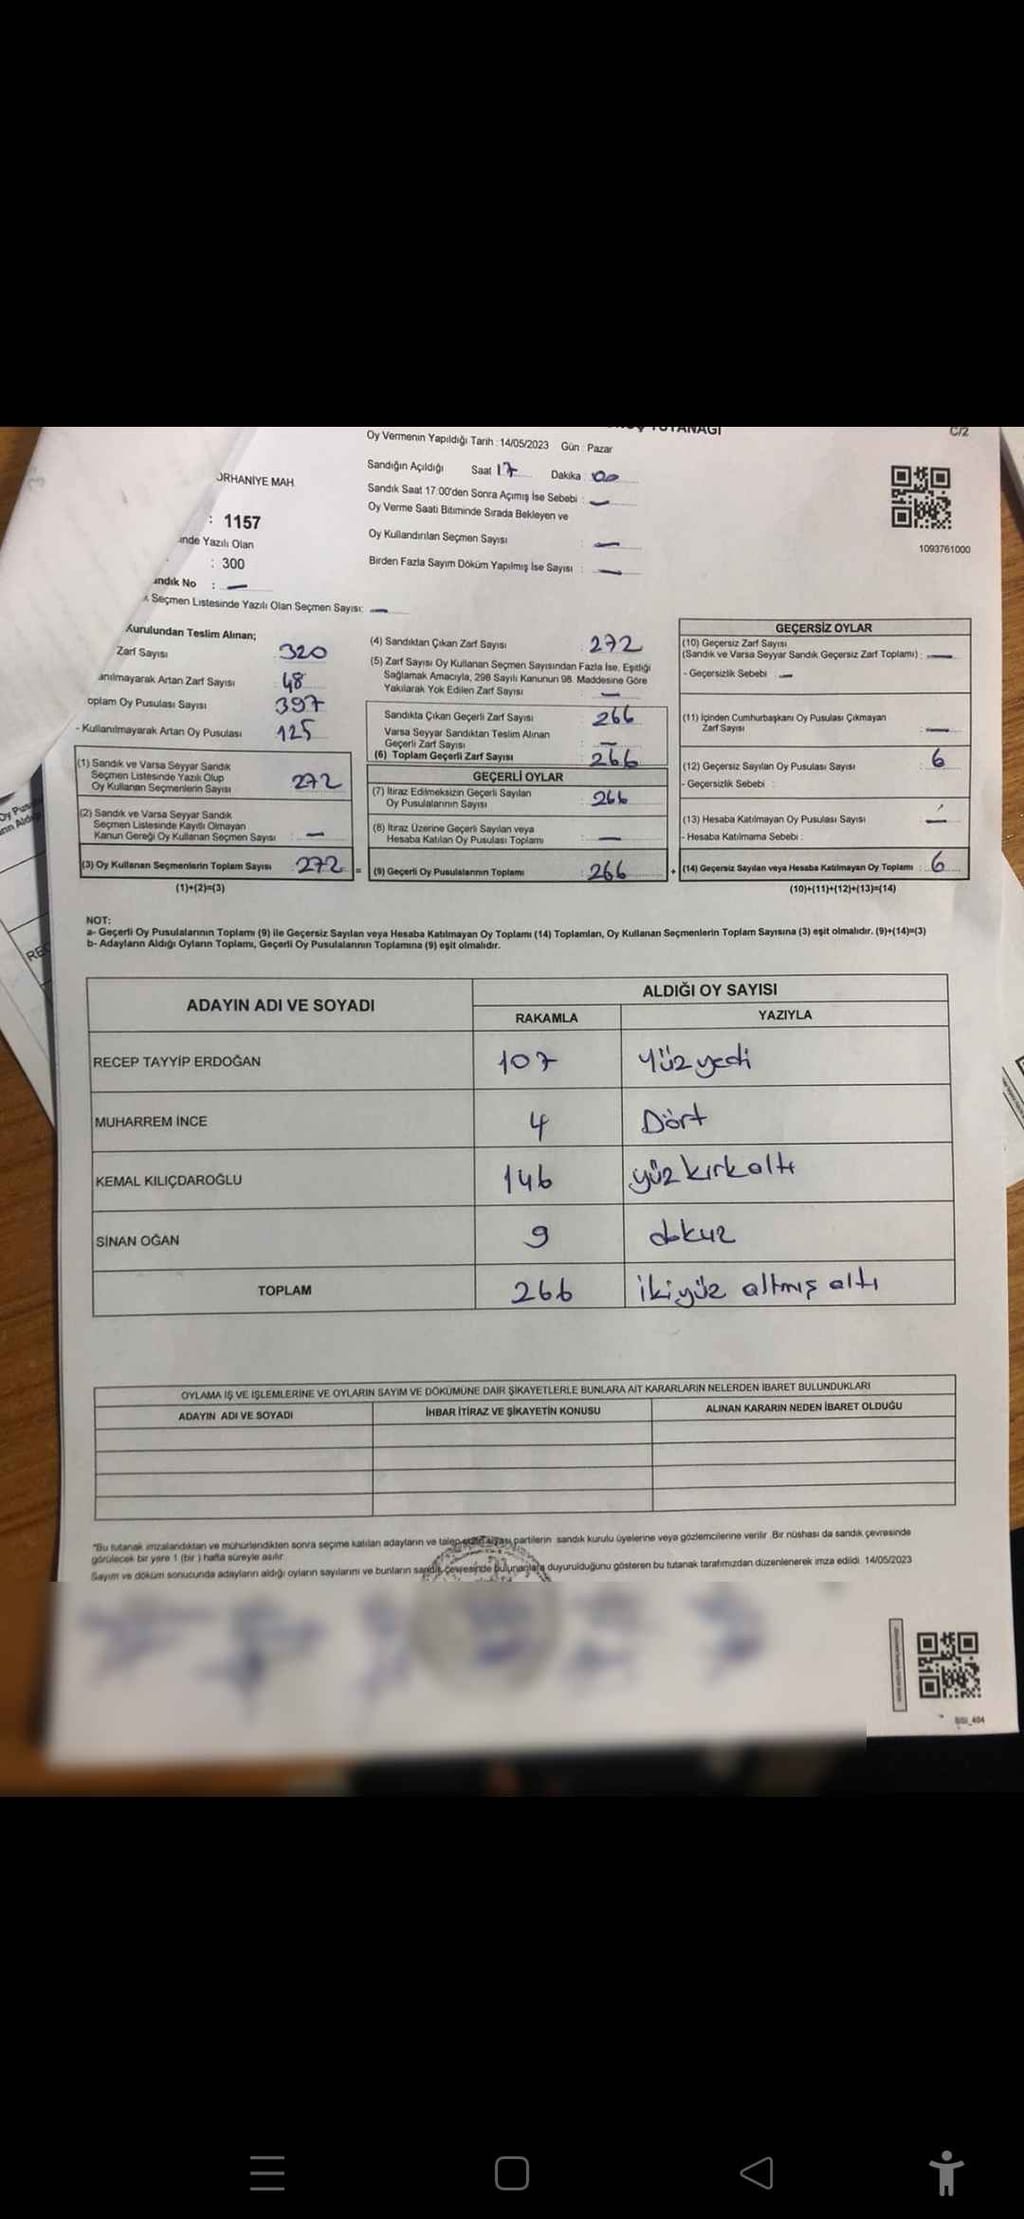 TUTANAĞI
C/2
Oy Vermenin Yapıldığı Tarih : 14/05/2023 Gün : Pazar
Sandığın Açıldığı Saat 17 Dakika 00
Sandık Saat 17:00'den Sonra Açılmış İse Sebebi : —
Oy Verme Saati Bitiminde Sırada Bekleyen ve
Oy Kullandırılan Seçmen Sayısı : —
Birden Fazla Sayım Döküm Yapılmış İse Sayısı : —
1093761000
ORHANİYE MAH
: 1157
inde Yazılı Olan
: 300
andık No : —
Seçmen Listesinde Yazılı Olan Seçmen Sayısı: —
Kurulundan Teslim Alınan;
Zarf Sayısı : 320
anılmayarak Artan Zarf Sayısı 48
oplam Oy Pusulası Sayısı 397
- Kullanılmayarak Artan Oy Pusulası 125
(1) Sandık ve Varsa Seyyar Sandık
Seçmen Listesinde Yazılı Olup
Oy Kullanan Seçmenlerin Sayısı 272
(2) Sandık ve Varsa Seyyar Sandık
Seçmen Listesinde Kayıtlı Olmayan
Kanun Gereği Oy Kullanan Seçmen Sayısı —
(3) Oy Kullanan Seçmenlerin Toplam Sayısı 272 =
(1)+(2)=(3)
(4) Sandıktan Çıkan Zarf Sayısı : 272
(5) Zarf Sayısı Oy Kullanan Seçmen Sayısından Fazla İse, Eşitliği
Sağlamak Amacıyla, 298 Sayılı Kanunun 98. Maddesine Göre
Yakılarak Yok Edilen Zarf Sayısı : —
Sandıkta Çıkan Geçerli Zarf Sayısı : 266
Varsa Seyyar Sandıktan Teslim Alınan
Geçerli Zarf Sayısı : —
(6) Toplam Geçerli Zarf Sayısı : 266
GEÇERLİ OYLAR
(7) İtiraz Edilmeksizin Geçerli Sayılan
Oy Pusulalarının Sayısı : 266
(8) İtiraz Üzerine Geçerli Sayılan veya
Hesaba Katılan Oy Pusulası Toplamı : —
(9) Geçerli Oy Pusulalarının Toplamı : 266 +
GEÇERSİZ OYLAR
(10) Geçersiz Zarf Sayısı
(Sandık ve Varsa Seyyar Sandık Geçersiz Zarf Toplamı) : —
- Geçersizlik Sebebi : —
(11) İçinden Cumhurbaşkanı Oy Pusulası Çıkmayan
Zarf Sayısı : —
(12) Geçersiz Sayılan Oy Pusulası Sayısı : 6
- Geçersizlik Sebebi :
(13) Hesaba Katılmayan Oy Pusulası Sayısı : —
- Hesaba Katılmama Sebebi :
(14) Geçersiz Sayılan veya Hesaba Katılmayan Oy Toplamı : 6
(10)+(11)+(12)+(13)=(14)
NOT:
a- Geçerli Oy Pusulalarının Toplamı (9) ile Geçersiz Sayılan veya Hesaba Katılmayan Oy Toplamı (14) Toplamları, Oy Kullanan Seçmenlerin Toplam Sayısına (3) eşit olmalıdır. (9)+(14)=(3)
b- Adayların Aldığı Oyların Toplamı, Geçerli Oy Pusulalarının Toplamına (9) eşit olmalıdır.
ADAYIN ADI VE SOYADI
ALDIĞI OY SAYISI
RAKAMLA YAZIYLA
RECEP TAYYİP ERDOĞAN 107 yüz yedi
MUHARREM İNCE 4 Dört
KEMAL KILIÇDAROĞLU 146 yüz kırk altı
SİNAN OĞAN 9 dokuz
TOPLAM 266 iki yüz altmış altı
OYLAMA İŞ VE İŞLEMLERİNE VE OYLARIN SAYIM VE DÖKÜMÜNE DAİR ŞİKAYETLERLE BUNLARA AİT KARARLARIN NELERDEN İBARET BULUNDUKLARI
ADAYIN ADI VE SOYADI İHBAR İTİRAZ VE ŞİKAYETİN KONUSU ALINAN KARARIN NEDEN İBARET OLDUĞU
"Bu tutanak imzalandıktan ve mühürlendikten sonra seçime katılan adayların ve talep eden siyasi partilerin sandık kurulu üyelerine veya gözlemcilerine verilir. Bir nüshası da sandık çevresinde
görülecek bir yere 1 (bir) hafta süreyle asılır.
Sayım ve döküm sonucunda adayların aldığı oyların sayılarını ve bunların sandık çevresinde bulunanlara duyurulduğunu gösteren bu tutanak tarafımızdan düzenlenerek imza edildi. 14/05/2023